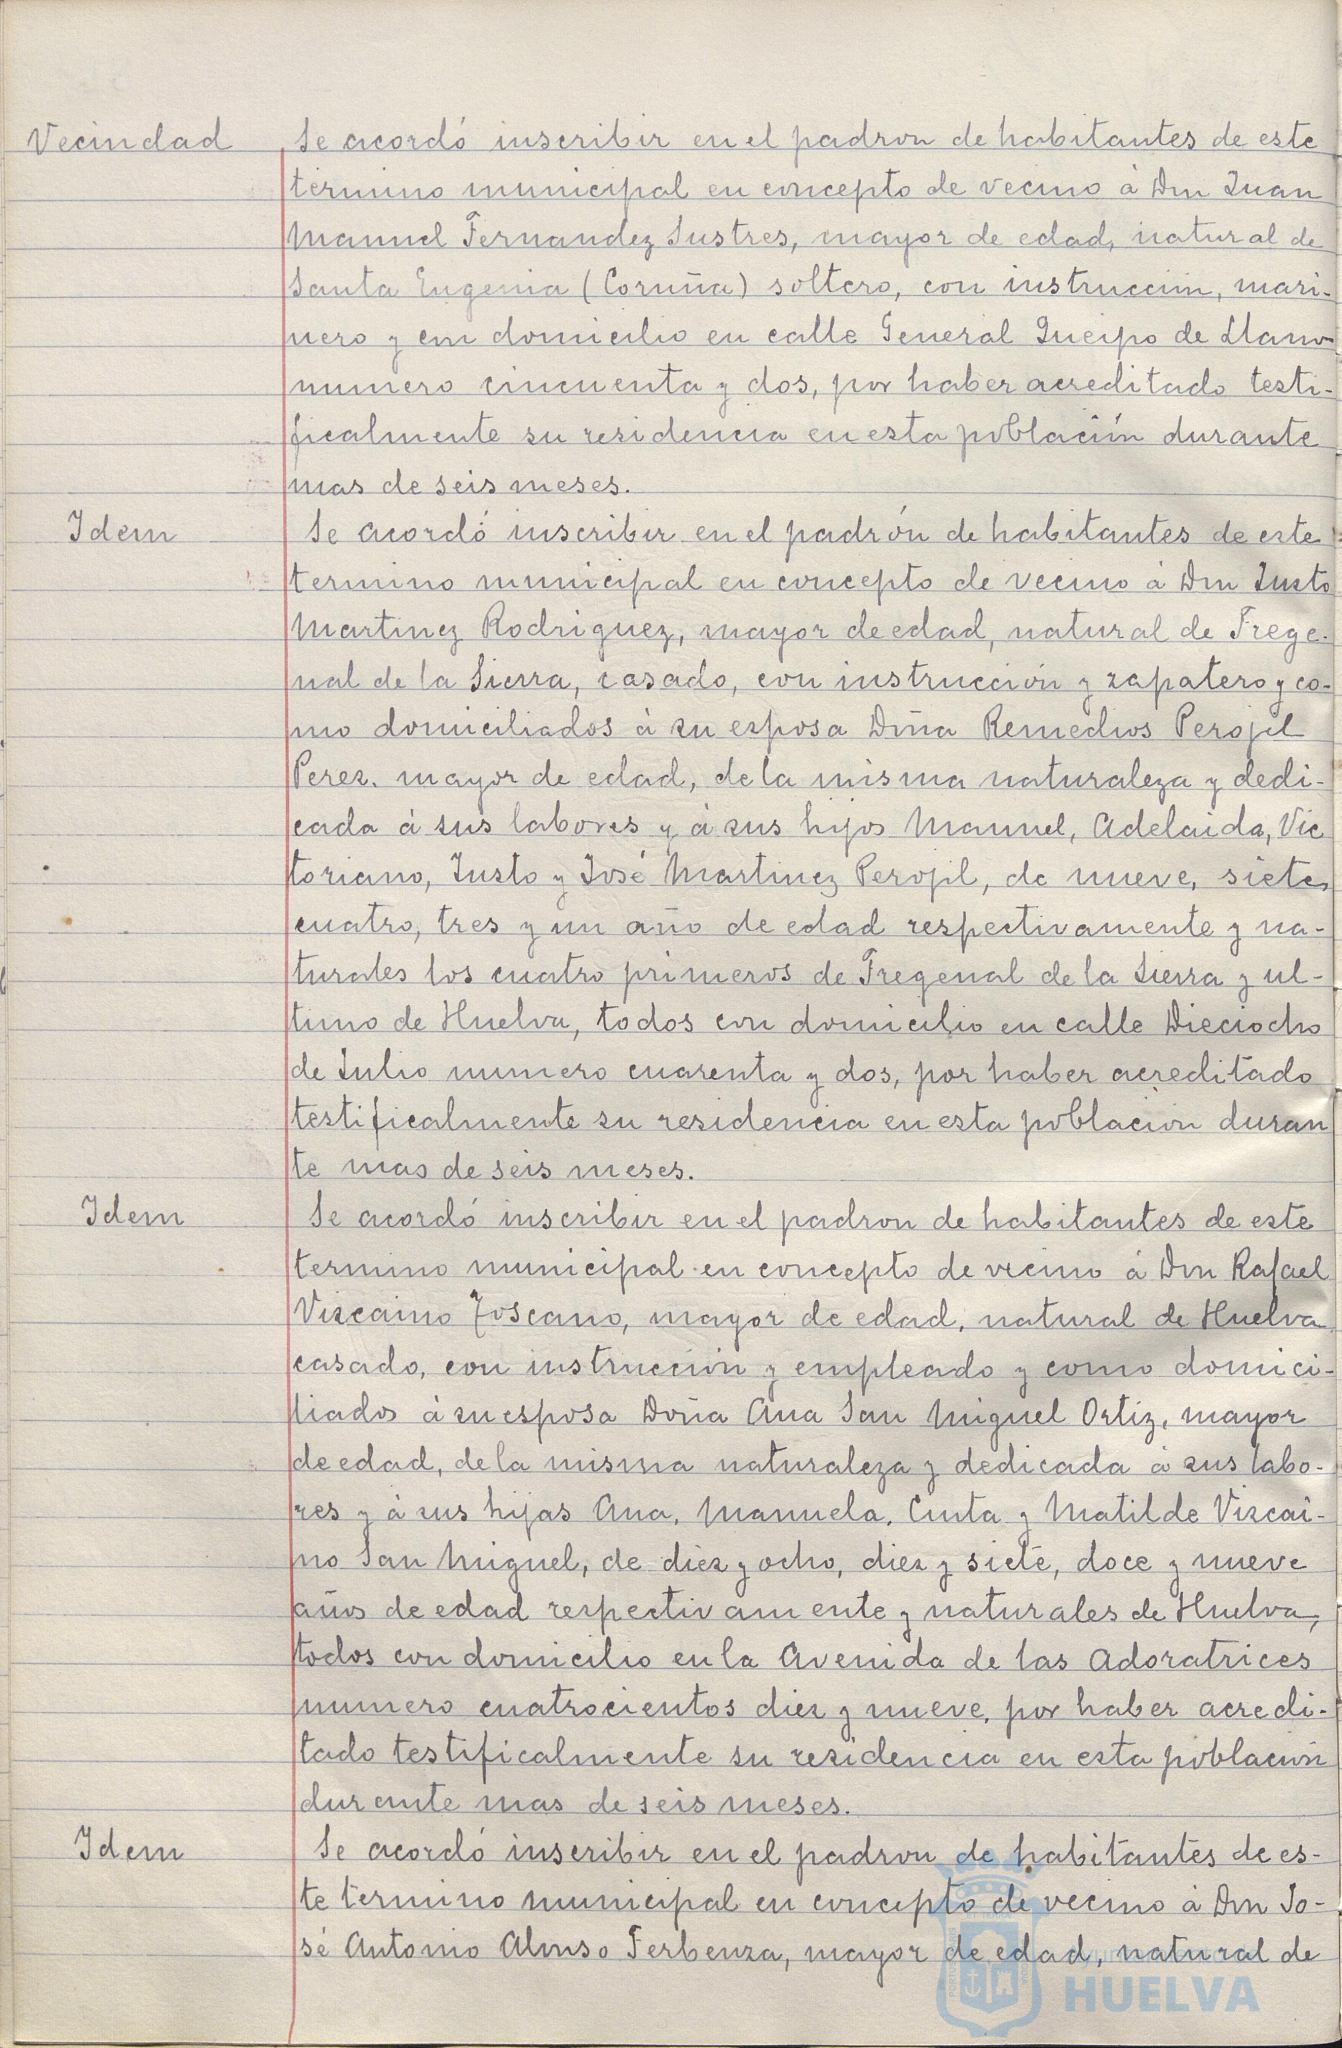 Vecindad Se acordó inscribir en el padron de habitantes de este
término municipal en concepto de vecino á Don Juan
Manuel Fernandez Sustres, mayor de edad, natural de
Santa Eugenia (Coruña) soltero, con instrucción, mari-
nero y con domicilio en calle General Queipo de Llano
numero cincuenta y dos, por haber acreditado testi-
ficalmente su residencia en esta población durante
mas de seis meses.
Idem Se acordó inscribir en el padrón de habitantes de este
termino municipal en concepto de vecino á Don Justo
Martinez Rodriguez, mayor de edad, natural de Frege-
nal de la Sierra, casado, con instrucción y zapatero y co-
mo domiciliados á su esposa Doña Remedios Perojil
Perez, mayor de edad, de la misma naturaleza y dedi-
cada á sus labores y á sus hijos Manuel, Adelaida, Vic
toriano, Justo y José Martinez Perojil, de nueve, siete,
cuatro, tres y un año de edad respectivamente y na-
turales los cuatro primeros de Fregenal de la Sierra y ul-
timo de Huelva, todos con domicilio en calle Dieciocho
de Julio numero cuarenta y dos, por haber acreditado
testificalmente su residencia en esta población duran
te mas de seis meses.
Idem Se acordó inscribir en el padron de habitantes de este
termino municipal en concepto de vecino á Don Rafael
Vizcaino Toscano, mayor de edad, natural de Huelva
casado, con instrucción y empleado y como domici-
liados á su esposa Doña Ana San Miguel Ortiz, mayor
de edad, de la misma naturaleza y dedicada á sus labo-
res y á sus hijas Ana, Manuela, Cinta y Matilde Vizcai-
no San Miguel, de diez y ocho, diez y siete, doce y nueve
años de edad respectivamente y naturales de Huelva,
todos con domicilio en la Avenida de las Adoratrices
numero cuatrocientos diez y nueve, por haber acredi-
tado testificalmente su residencia en esta población
durante mas de seis meses.
Idem Se acordó inscribir en el padron de habitantes de es-
te termino municipal en concepto de vecino á Don Jo-
sé Antonio Alonso Ferbenza, mayor de edad, natural de
HUELVA